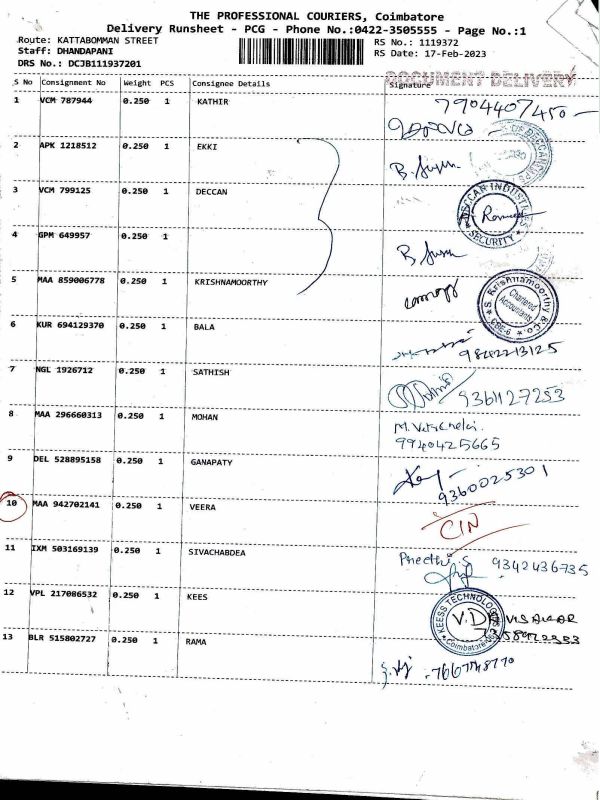 THE PROFESSIONAL COURIERS, Coimbatore
Delivery Runsheet - PCG - Phone No.:0422-3505555 - Page No.:1
Route: KATTABOMMAN STREET
Staff: DHANDAPANI
DRS No.: DCJB111937201
RS No.: 1119372
RS Date: 17-Feb-2023
DOCUMENT DELIVERY
S No Consignment No Weight PCS Consignee Details Signature
1 VCM 787944 0.250 1 KATHIR 7904407450
2 APK 1218512 0.250 1 EKKI
3 VCM 799125 0.250 1 DECCAN
DECCAN INDUSTRIES SECURITY
4 GPM 649957 0.250 1
5 MAA 859006778 0.250 1 KRISHNAMOORTHY
S. Krishnamoorthy & Co. Chartered Accountants CBE-6
6 KUR 694129370 0.250 1 BALA
7 NGL 1926712 0.250 1 SATHISH 9361127253
8 MAA 296660313 0.250 1 MOHAN
9940425665
9 DEL 528895158 0.250 1 GANAPATY 9360025301
10 MAA 942702141 0.250 1 VEERA CIN
11 IXM 503169139 0.250 1 SIVACHABDEA Preethi S 9342436735
12 VPL 217086532 0.250 1 KEES
KEESS TECHNOLOGIES Coimbatore V.D
13 BLR 515802727 0.250 1 RAMA